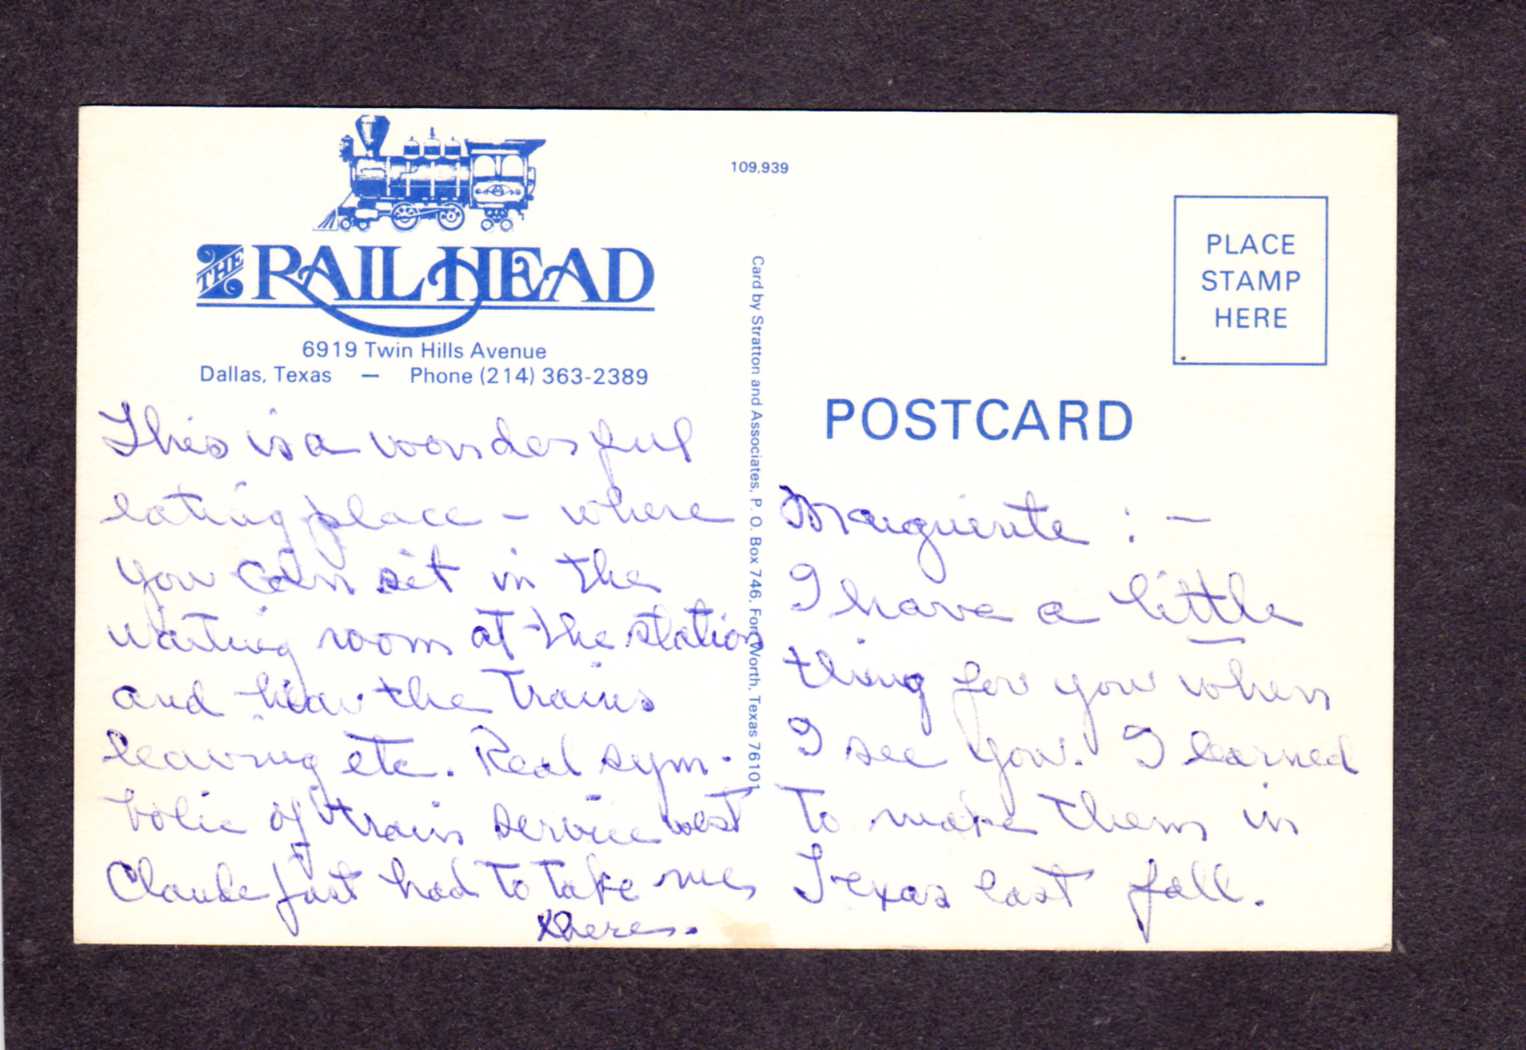 THE RAILHEAD
6919 Twin Hills Avenue
Dallas, Texas — Phone (214) 363-2389
This is a wonderful
eating place - where
you can sit in the
waiting room at the station
and hear the trains
leaving etc. Real sym-
bolic of train service west
Claude just had to take me
there.
109,939
Card by Stratton and Associates, P. O. Box 746, Fort Worth, Texas 76101
PLACE
STAMP
HERE
POSTCARD
Marguerite : —
I have a little
thing for you when
I see you. I learned
to make them in
Texas last fall.